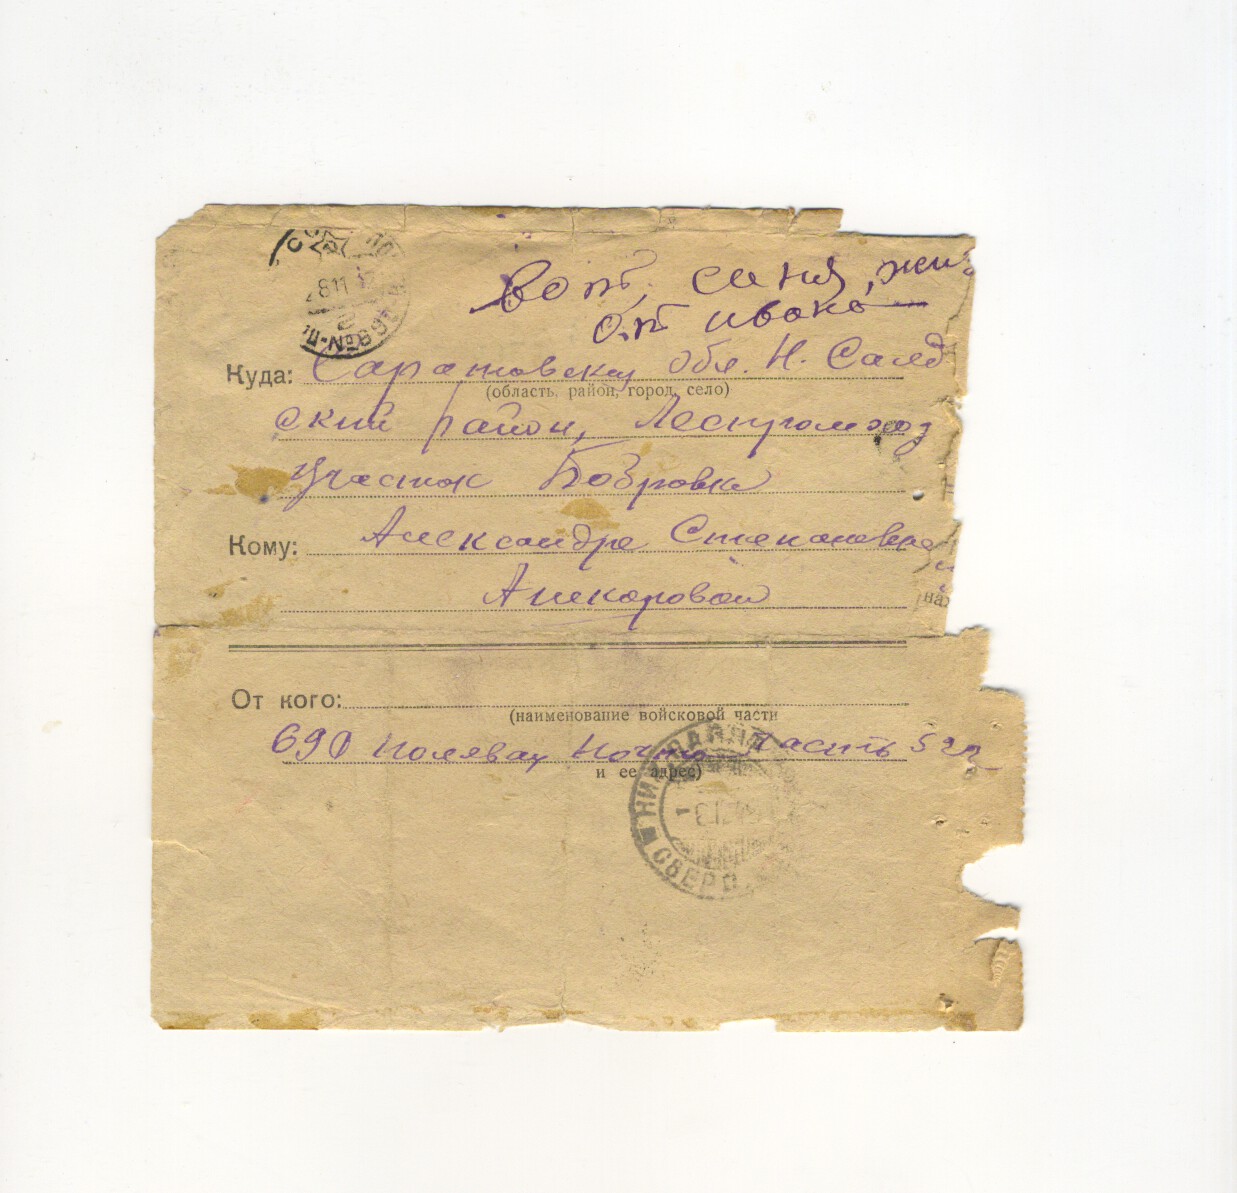 вот, саня, жи
от ивана
Куда: Саратовская обл. Н. Салд
(область, район, город, село)
ский район, Леспромхоз
участок Бобровка
Кому: Александре Степановне
на
От кого:
(наименование войсковой части
690 Полевая Почта часть 522
и ее адрес)
НИЖ
СВЕРД